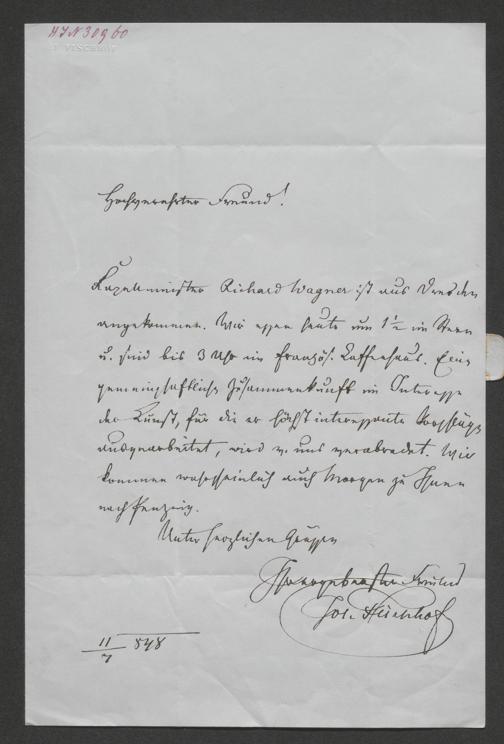 HIN 30960
Hochverehrter Freund!
Kapellmeister Richard Wagner ist aus Dresden
angekommen. Wir essen heute um 1½ im Stern
u. sind bis 3 Uhr im französ. Kaffeehaus. Eine
gemeinschaftliche Zusammenkunft im Interesse
der Kunst, für die er höchst interessante Vorschläge
ausgearbeitet, wird v. uns verabredet. Wir
kommen wahrscheinlich auch Morgen zu Ihnen
nach Penzing.
Unter herzlichen Grüssen
Ihr ergebenster Freund
Jos.
11/7 848